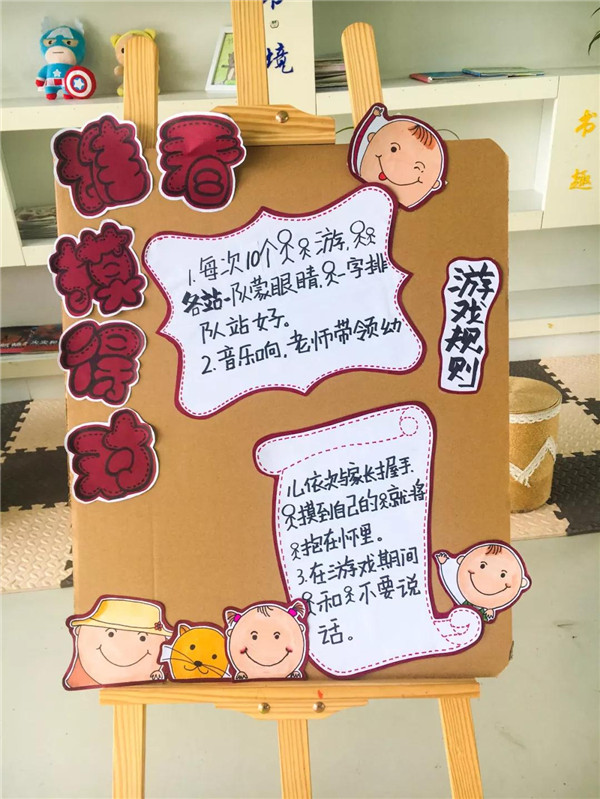 书·境
书
趣
看谁
摸
得
对
1.每次10个游.
各站一队蒙眼睛一字排
队站好。
2.音乐响,老师带领幼
游戏规则
儿依次与家长握手.
摸到自己的就将
抱在怀里。
3.在游戏期间
和不要说
话。